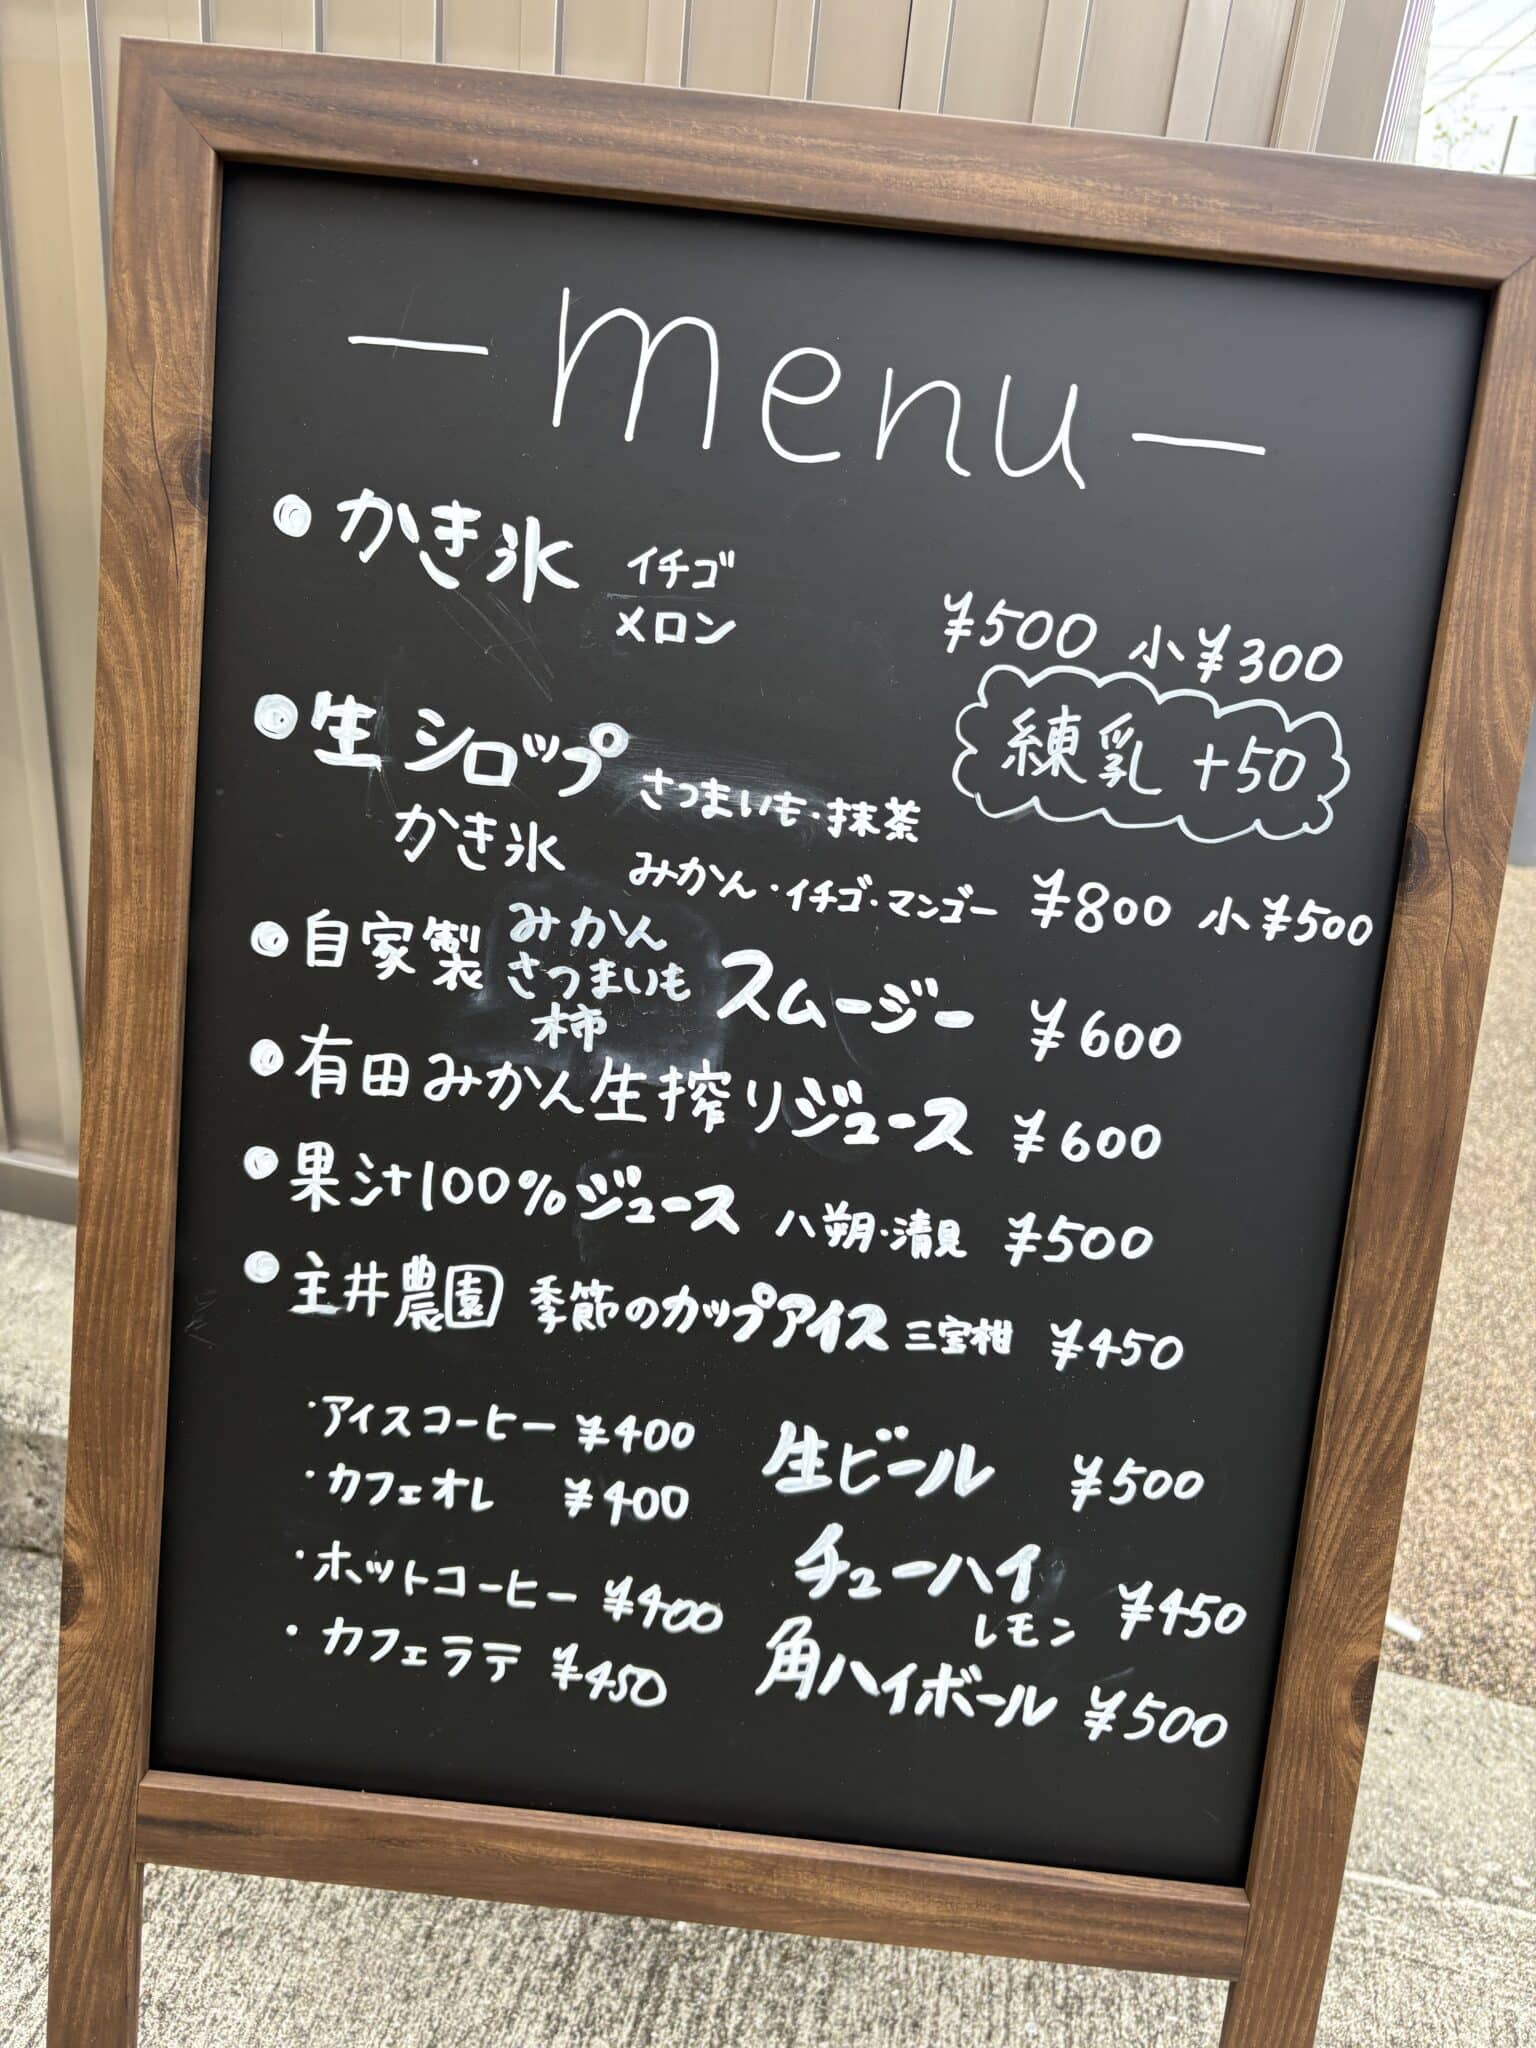 －menu－
●かき氷 イチゴ メロン ¥500 小¥300
練乳 +50
●生シロップ かき氷 さつまいも・抹茶
みかん・イチゴ・マンゴー ¥800 小¥500
●自家製 みかん さつまいも 柿 スムージー ¥600
●有田みかん生搾りジュース ¥600
●果汁100%ジュース 八朔・清見 ¥500
●主井農園 季節のカップアイス 三宝柑 ¥450
・アイスコーヒー ¥400
・カフェオレ ¥400
・ホットコーヒー ¥400
・カフェラテ ¥450
生ビール ¥500
チューハイ レモン ¥450
角ハイボール ¥500